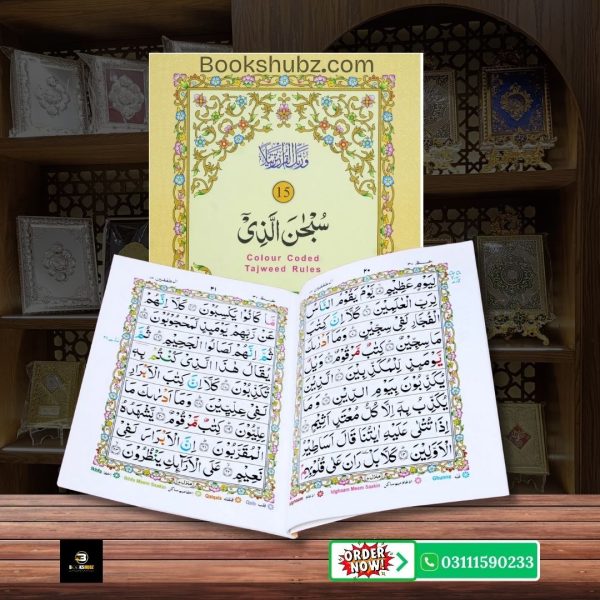 Bookshubz.com
ورتل القرآن ترتيلا
15
سُبْحٰنَ الَّذِیْۤ
Colour Coded
Tajweed Rules
٢٠
لِيَوْمٍ عَظِيْمٍ ۙ يَّوْمَ يَقُوْمُ النَّاسُ
لِرَبِّ الْعٰلَمِيْنَ ؕ كَلَّاۤ اِنَّ كِتٰبَ
الْفُجَّارِ لَفِيْ سِجِّيْنٍ ؕ وَمَاۤ اَدْرٰىكَ
مَا سِجِّيْنٌ ؕ كِتٰبٌ مَّرْقُوْمٌ ؕ وَيْلٌ
يَّوْمَئِذٍ لِّلْمُكَذِّبِيْنَ ۙ الَّذِيْنَ
يُكَذِّبُوْنَ بِيَوْمِ الدِّيْنِ ؕ وَمَا
يُكَذِّبُ بِهٖۤ اِلَّا كُلُّ مُعْتَدٍ اَثِيْمٍ
اِذَا تُتْلٰى عَلَيْهِ اٰيٰتُنَا قَالَ اَسَاطِيْرُ
الْاَوَّلِيْنَ ؕ كَلَّا بَلْ رَانَ عَلٰى قُلُوْبِهِمْ
Idgham Meem Saakin Ghunna
٢١
مَّا كَانُوْا يَكْسِبُوْنَ كَلَّاۤ اِنَّهُمْ
عَنْ رَّبِّهِمْ يَوْمَئِذٍ لَّمَحْجُوْبُوْنَ
ثُمَّ اِنَّهُمْ لَصَالُوا الْجَحِيْمِ ثُمَّ
يُقَالُ هٰذَا الَّذِيْ كُنْتُمْ بِهٖ
تُكَذِّبُوْنَ كَلَّاۤ اِنَّ كِتٰبَ الْاَبْرَارِ
لَفِيْ عِلِّيِّيْنَ وَمَاۤ اَدْرٰىكَ مَا
عِلِّيُّوْنَ كِتٰبٌ مَّرْقُوْمٌ يَّشْهَدُهُ
الْمُقَرَّبُوْنَ اِنَّ الْاَبْرَارَ لَفِيْ
نَعِيْمٍ عَلَى الْاَرَآئِكِ يَنْظُرُوْنَ
Ikhfa Ikhfa Meem Saakin Qalqala Qalb
ORDER NOW!
03111590233